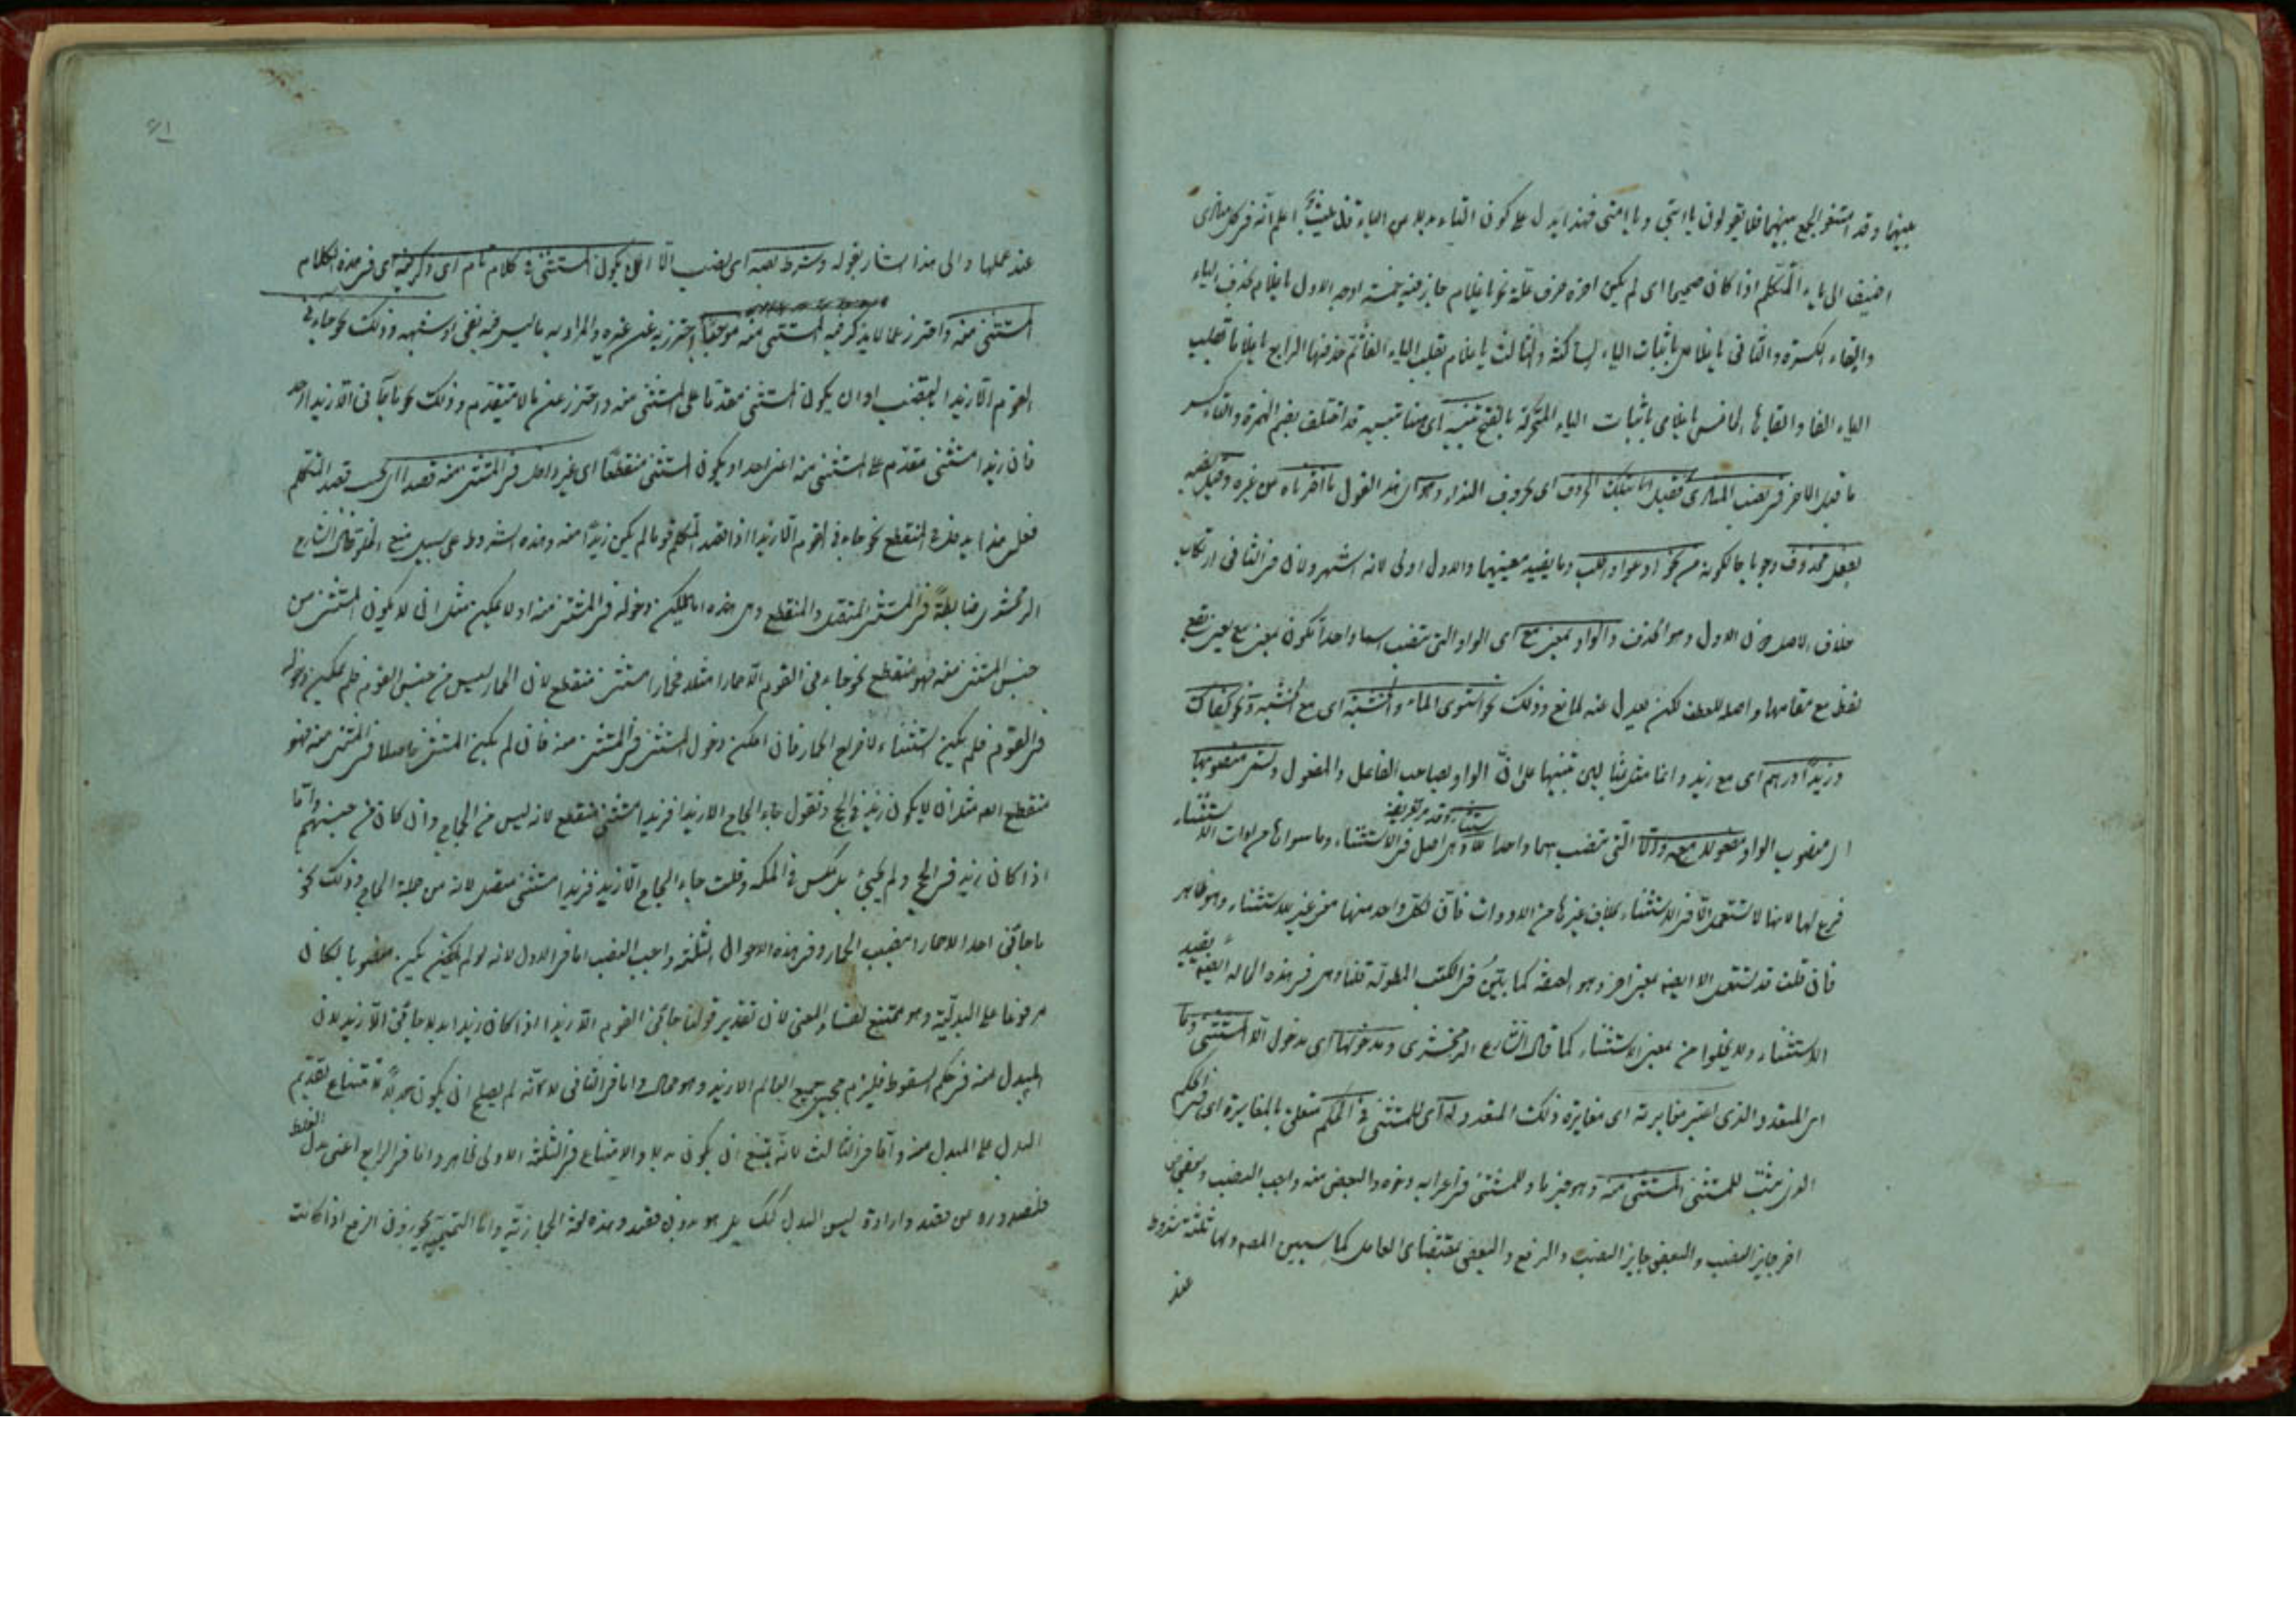 بينهما وقد امتنع الجمع بينهما فلا يقولون يا ابتي ويا امتي فهذا يدل على كون التاء بدلا من الياء اعلم انه في كل منادى
اضيف الى ياء المتكلم اذا كان صحيحا اى لم يكن اخره حرف علة نحو يا غلام جاز فيه خمسة اوجه الاول يا غلام بحذف الياء
وابقاء الكسرة والثانى يا غلامى باثبات الياء الساكنة والثالث يا غلام بقلب الياء الفا ثم حذفها الرابع يا غلاما بقلب
الياء الفا وابقائها الخامس يا غلامى باثبات الياء المتحركة بالفتح تنبيه اى هذا تنبيه قد اختلف بضم الهمزة والتاء وكسر
ما قبل الاخر فى نصب المنادى فقيل انما بتلك الحروف اى بحروف النداء وهو اى هذا القول ما اختاره من غيره وقيل نصبه
بفعل محذوف وجوبا من نحو ادعوا واطلب وما يفيد معنيهما والاول اولى لانه اشهر ولان فى الثانى ارتكاب
خلاف الاصل دون الاول وهو الحذف والواو بمعنى مع اى الواو التى تنصب اسما واحدا تكون بمعنى مع يعنى تقع
لفظ مع مقامها واصله للعطف لكن يعدل عنه لمانع وذلك نحو استوى الماء والخشبة اى مع الخشبة ونحو كفاك
وزيدا درهم اى مع زيد وانما مثل بمثالين تنبيها على ان الواو يصاحب الفاعل والمفعول وتسمى منصوبها
اى منصوب الواو مفعولا معه والا التى تنصب اسما واحدا للاستثناء وقد مر تعريفه وهى اصل فى الاستثناء وما سواها من ادوات الاستثناء
فرع لها لانها لا تستعمل الا فى الاستثناء بخلاف غيرها من الادوات فان لكل واحد منها معنى غير الاستثناء وهو ظاهر
فان قلت قد تستعمل الا ايضا بمعنى اخر وهو الصفة كما بين فى الكتب المطولة قلنا وهى فى هذه الحالة ايضا يفيد
الاستثناء ولا يخلوا من معنى الاستثناء كما قال الشارع الزمخشرى ومدخولها اى مدخول الا المستثنى وما
اى المتعدد الذى اعتبر مغايرته اى مغايرة ذلك المتعدد له اى للمستثنى فى الحكم متعلق بالمغايرة اى فى الحكم
الذى يثبت للمستثنى المستثنى منه وهو وللمستثنى فى اعرابه وجوه والبعض منه واجب النصب وبعض
اخر جايز النصب والبعض جايز النصب والرفع والبعض بمقتضاى العامل كما سيبين المصـ ولها ثلثة شروط
عند
٤١
عند عملها والى هذا اشار بقوله وشرط نصبه اى نصب الا ان يكون المستثنى فى كلام تام اى ذكر فيه اى فى هذه الكلام
المستثنى منه واحترز عما لا يذكر فيه المستثنى منه موجبا احترز به عن غيره والمراد به ما ليس فيه نفى او شبهه وذلك نحو جاءنى
القوم الا زيدا بالنصب او ان يكون المستثنى مقدما على المستثنى منه واحترز عن ما لا يتقدم وذلك نحو ما جآنى الا زيدا احد
فان زيدا مستثنى مقدم على المستثنى منه اعنى احد او يكون المستثنى منقطعا اى غير داخل فى المستثنى منه قصدا اى بحسب قصد المتكلم
فعلى هذا المنقطع نحو جاءنى القوم الا زيدا اذا قصد المتكلم قوما لم يكن زيدا منه وهذه الشروط على سبيل منع الخلو قال الشارع
الزمخشرى ضابطة فى المستثنى المتصل والمنقطع وهى هذه اما يمكن دخوله فى المستثنى منه او لا يمكن مثل انى لا يكون المستثنى من
جنس المستثنى منه فهو منقطع نحو جاءنى القوم الا حمارا مثلا فحمارا مستثنى منقطع لان الحمار ليس من جنس القوم فلم يمكن دخوله
فى القوم فلم يكن استثناء لاخراج الحمار فان امكن دخول المستثنى فى المستثنى منه فان لم يكن المستثنى داخلا فى المستثنى منه فهو
منقطع ايضا مثل ان لا يكون زيد فى الحج وتقول جاء الحجاج الا زيدا فزيدا مستثنى منقطع لانه ليس من الحجاج وان كان من جنسهم واما
اذا كان زيد فى الحج ولم يجئ بل مكث فى المكة وقلت جاء الحجاج الا زيد فزيدا مستثنى متصل لانه من جملة الحجاج وذلك نحو
ما جائنى احد الا حمارا بنصب الحمار وفى هذه الاحوال الثلثة واجب النصب اما فى الاول لانه لو لم يكن منصوبا لكان
مرفوعا على البدلية وهو ممتنع لفساد المعنى لان تقدير قولنا جائنى القوم الا زيدا اذا كان زيدا بدلا جائنى الا زيد لان
المبدل منه فى حكم السقوط فيلزم مجيئ جميع العالم الا زيد وهو محال واما فى الثانى لانه لم يصلح ان يكون بدلا لامتناع تقديم
البدل على المبدل منه واما فى الثالث لانه يمتنع ان يكون بدلا والامتناع فى الثلثة الاولى ظاهر واما فى الرابع اعنى بدل الغلط
فلصدوره من قصد وارادة ليس البدل كك بل هو بدون قصد وهذه لغة الحجازية واما التميمى يجوزون الرفع اذا كانت